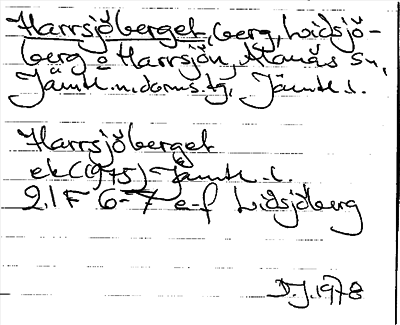 Harrsjöberget, berg, Lidsjö-
berg o Harrsjön, Alanäs sn,
Jämtl. n. doms. tg, Jämtl. l.
Harrsjöberget
ek (1975) Jämtl. l.
21F 6-7 e-f Lidsjöberg
D.J. 1978